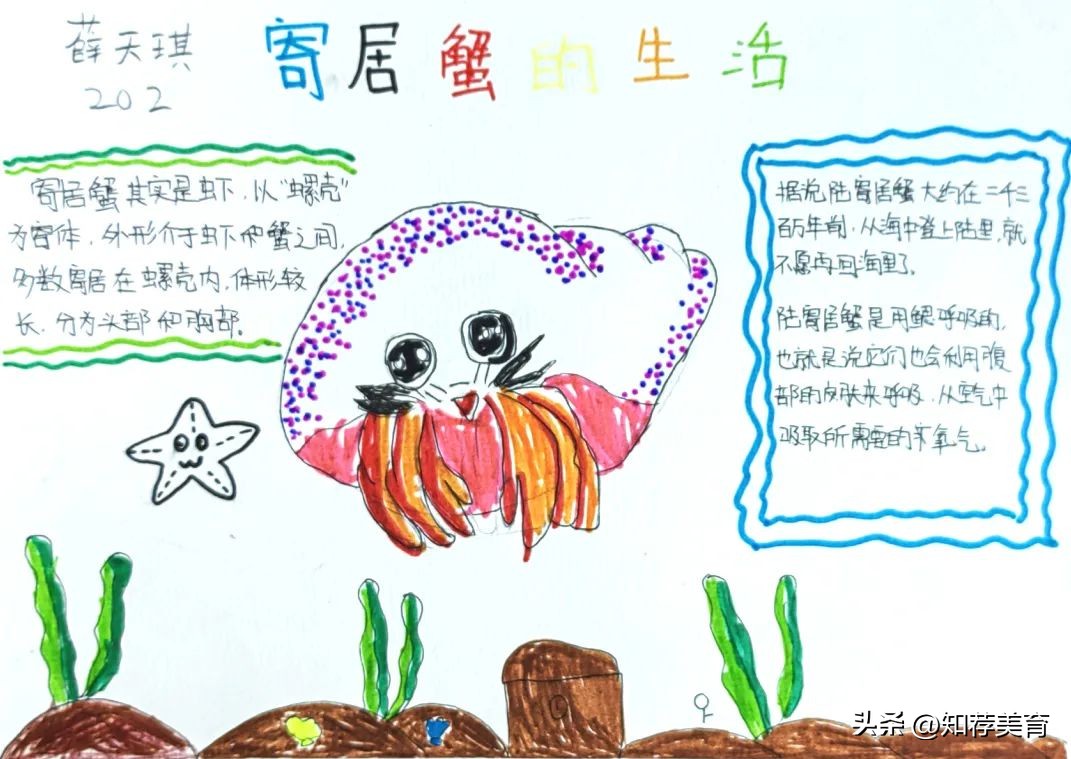 薛天琪
202
寄居蟹的生活
寄居蟹其实是虾，以“螺壳”
为寄体，外形介于虾和蟹之间，
多数寄居在螺壳内，体形较
长，分为头部和胸部。
据说陆寄居蟹大约在二千三
百万年前，从海中登上陆里，就
不愿再回海里了。
陆寄居蟹是用鳃呼吸的，
也就是说它们也会利用腹
部的皮肤来呼吸，从空气中
吸取所需要的氧气。
头条 @知荐美育